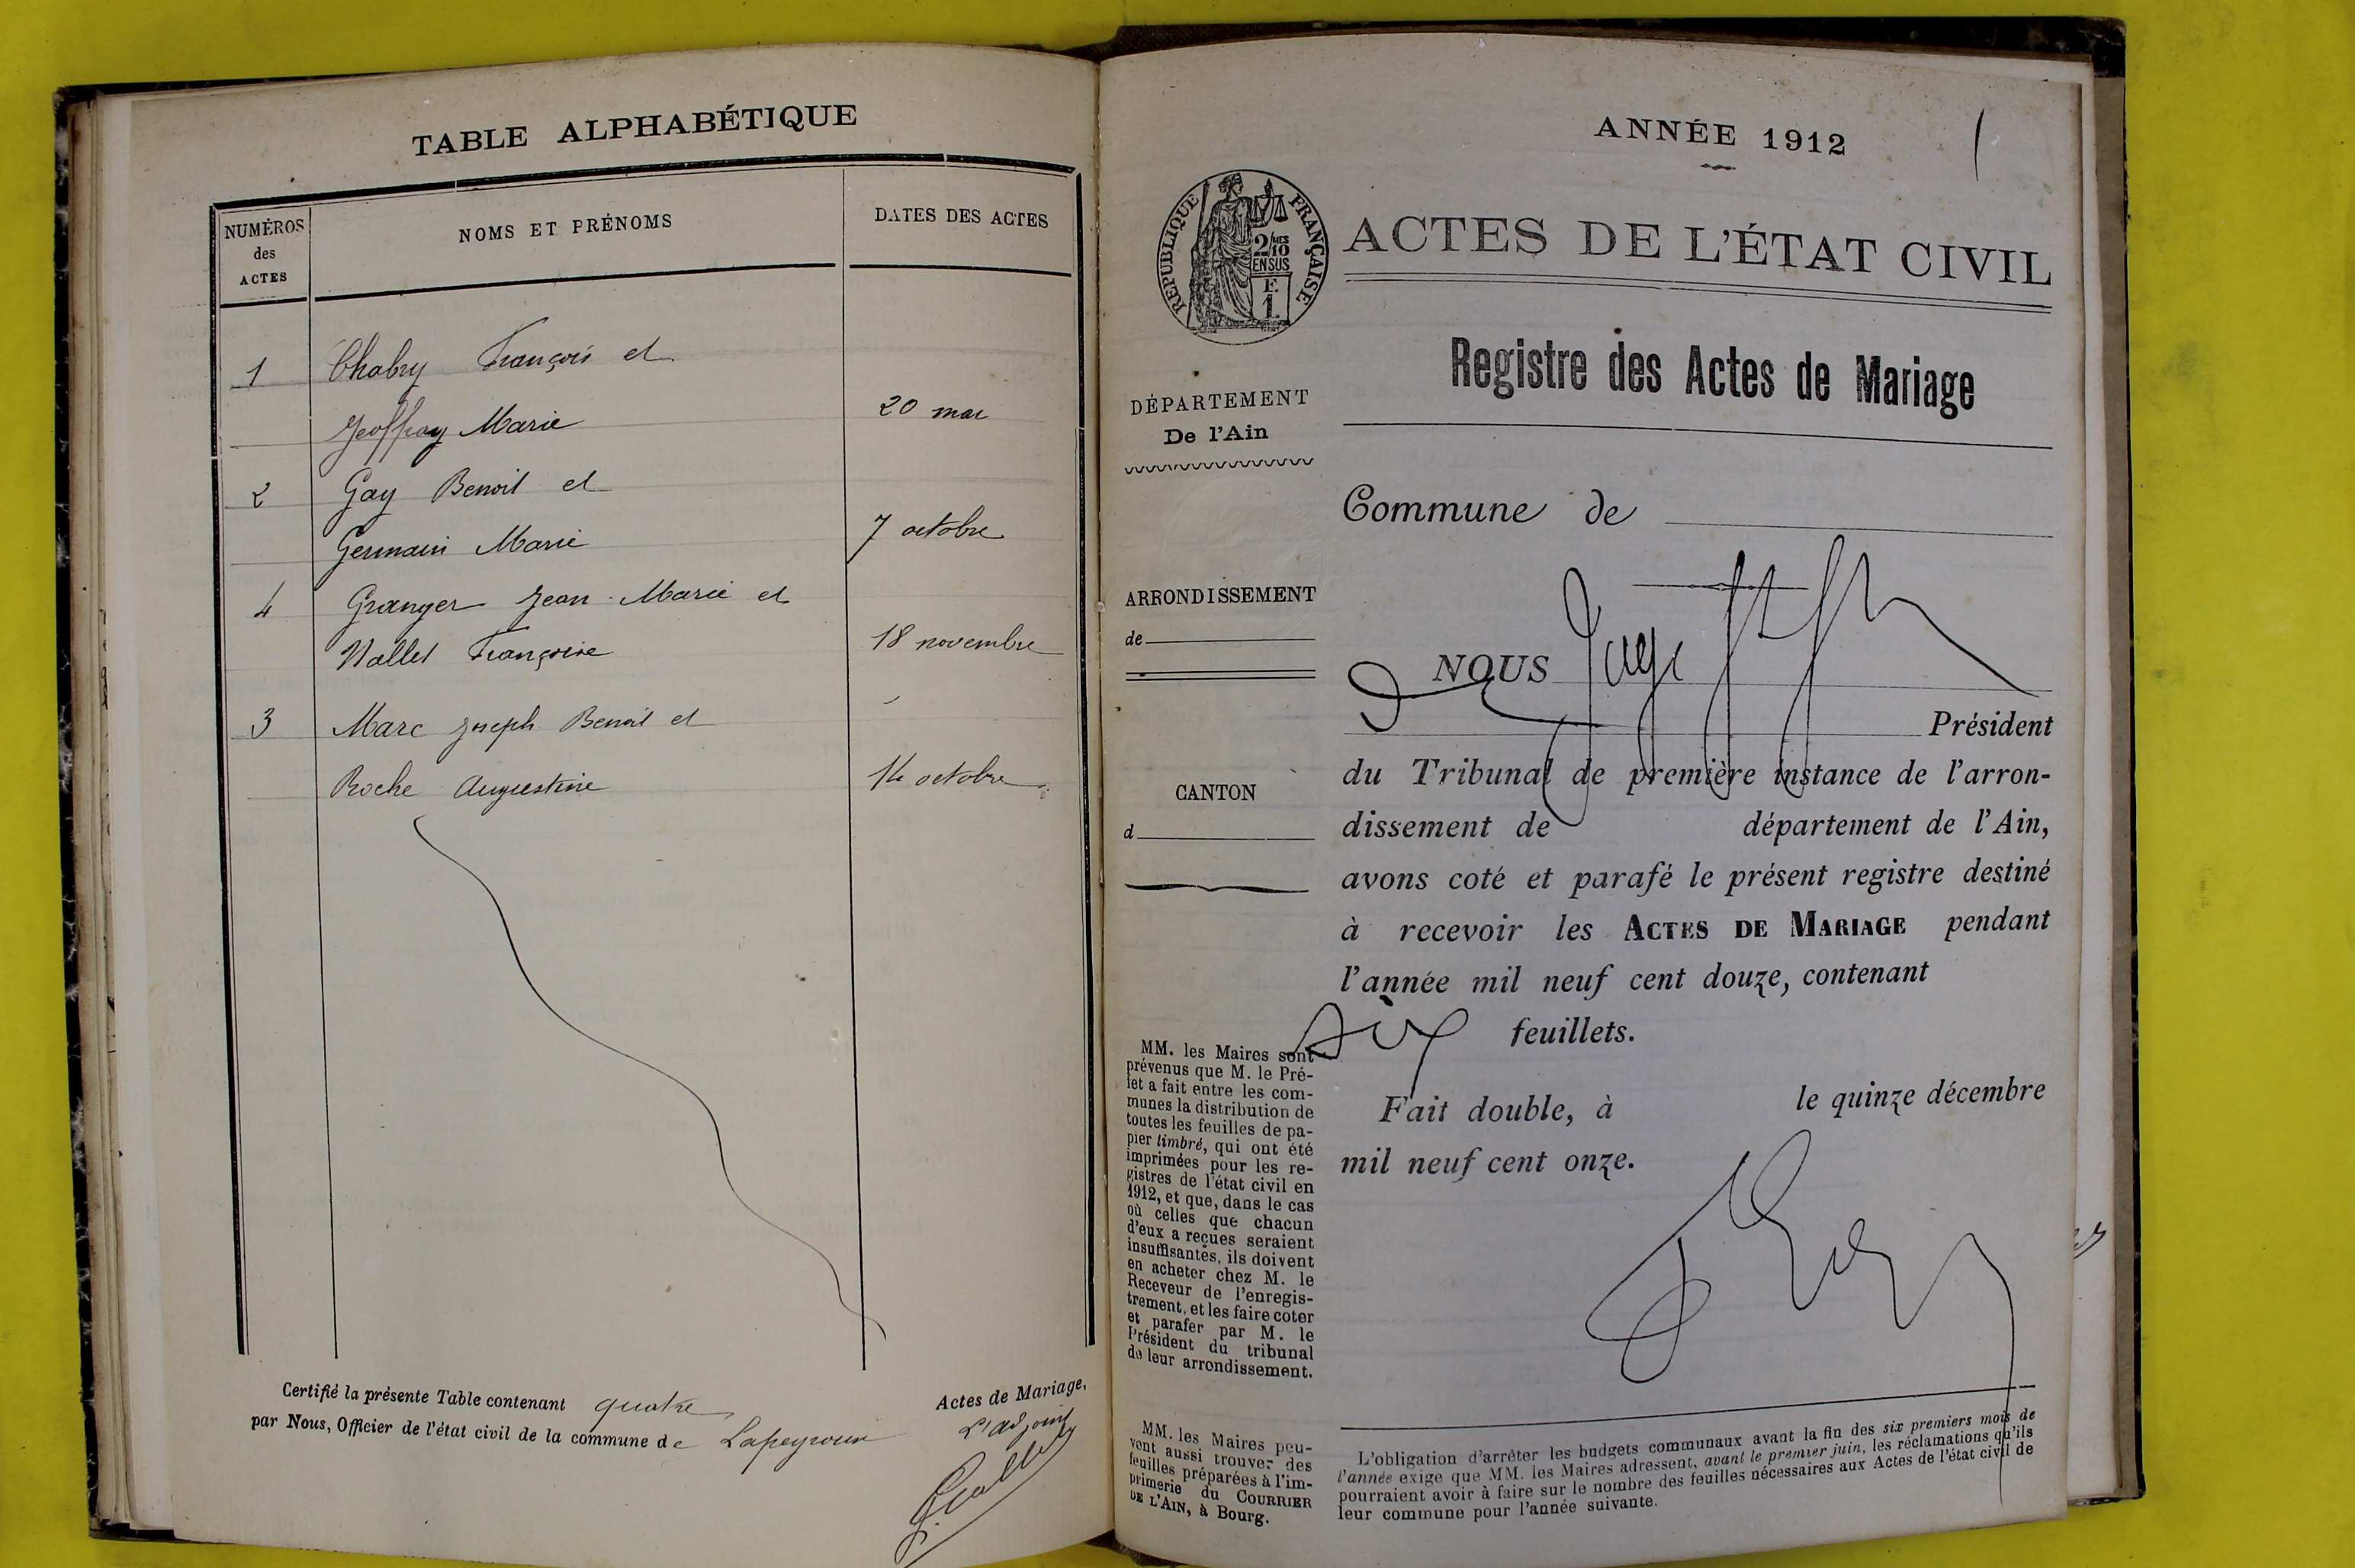 TABLE ALPHABÉTIQUE
NUMÉROS
des
ACTES
NOMS ET PRÉNOMS
DATES DES ACTES
1 Chabry François et
Geoffray Marie 20 mai
2 Gay Benoit et
Germain Marie 7 octobre
4 Granger Jean-Marie et
Nallet Françoise 18 novembre
3 Marc Joseph Benoit et
Roche Augustine 14 octobre
Certifié la présente Table contenant quatre Actes de Mariage,
par Nous, Officier de l'état civil de la commune de Lapeyrouse
L'adjoint
ANNÉE 1912
1
RÉPUBLIQUE FRANÇAISE
2/10
EN SUS
F.
1
ACTES DE L'ÉTAT CIVIL
Registre des Actes de Mariage
DÉPARTEMENT
De l'Ain
Commune de
ARRONDISSEMENT
de
NOUS
Président
du Tribunal de première instance de l'arron-
dissement de département de l'Ain,
avons coté et parafé le présent registre destiné
à recevoir les ACTES DE MARIAGE pendant
l'année mil neuf cent douze, contenant
six feuillets.
Fait double, à le quinze décembre
mil neuf cent onze.
CANTON
d
MM. les Maires sont
prévenus que M. le Pré-
fet a fait entre les com-
munes la distribution de
toutes les feuilles de pa-
pier timbré, qui ont été
imprimées pour les re-
gistres de l'état civil en
1912, et que, dans le cas
où celles que chacun
d'eux a reçues seraient
insuffisantes, ils doivent
en acheter chez M. le
Receveur de l'enregis-
trement, et les faire coter
et parafer par M. le
Président du tribunal
de leur arrondissement.
MM. les Maires peu-
vent aussi trouver des
feuilles préparées à l'im-
primerie du COURRIER
DE L'AIN, à Bourg.
L'obligation d'arrêter les budgets communaux avant la fin des six premiers mois de
l'année exige que MM. les Maires adressent, avant le premier juin, les réclamations qu'ils
pourraient avoir à faire sur le nombre des feuilles nécessaires aux Actes de l'état civil de
leur commune pour l'année suivante.